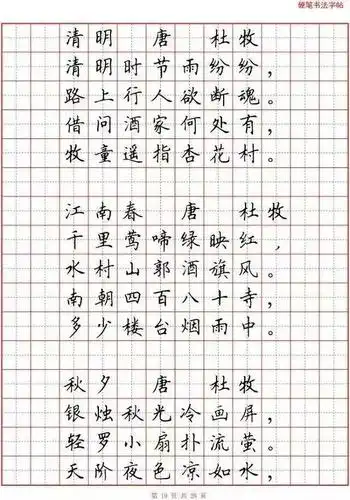 硬笔书法字帖
清明 唐 杜牧
清明时节雨纷纷，
路上行人欲断魂。
借问酒家何处有，
牧童遥指杏花村。
江南春 唐 杜牧
千里莺啼绿映红，
水村山郭酒旗风。
南朝四百八十寺，
多少楼台烟雨中。
秋夕 唐 杜牧
银烛秋光冷画屏，
轻罗小扇扑流萤。
天阶夜色凉如水，
第 19 页 共 28 页